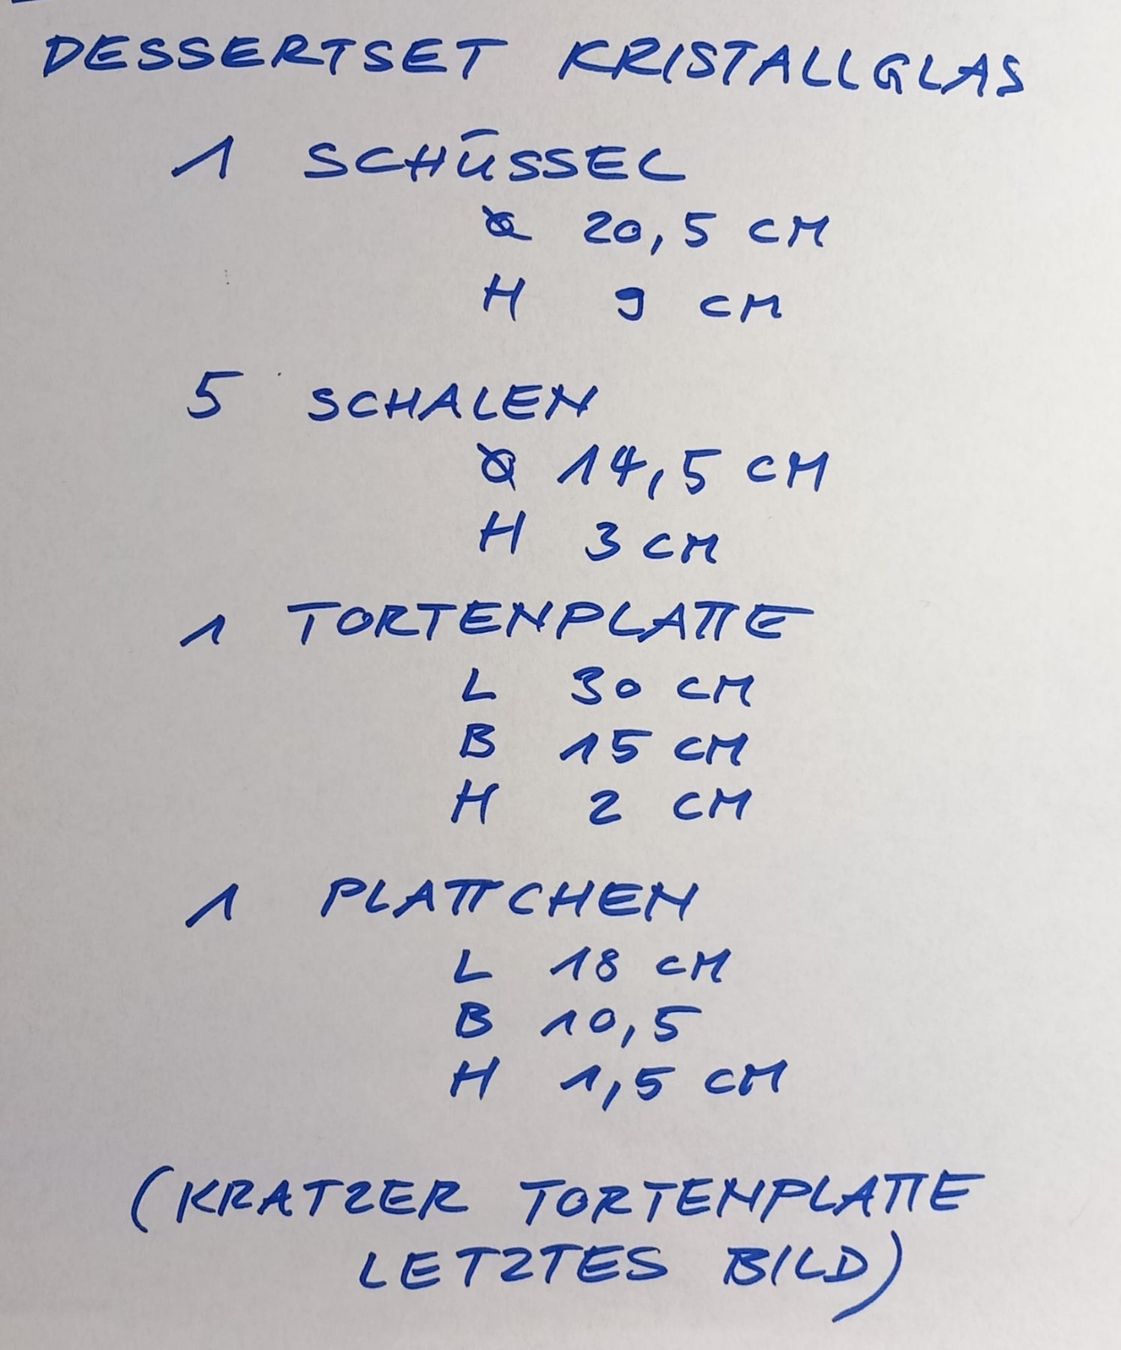 DESSERTSET KRISTALLGLAS
1 SCHÜSSEL
Ø 20,5 CM
H 9 CM
5 SCHALEN
Ø 14,5 CM
H 3 CM
1 TORTENPLATTE
L 30 CM
B 15 CM
H 2 CM
1 PLATTCHEN
L 18 CM
B 10,5
H 1,5 CM
(KRATZER TORTENPLATTE
LETZTES BILD)